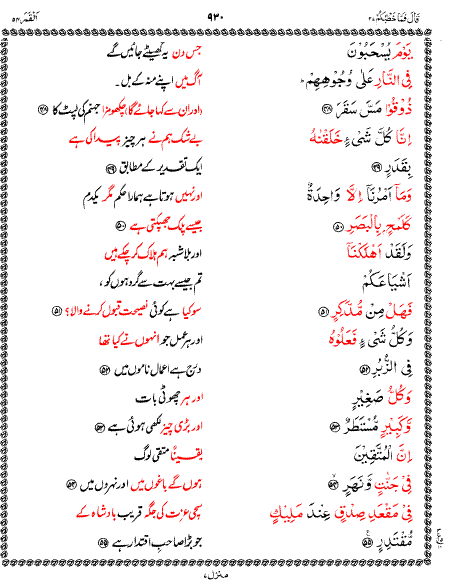 قَالَ فَمَا خَطْبُكُمْ ٢٧ ٩٣٠ اَلْقَمَر ٥٤
يَوْمَ يُسْحَبُوْنَ جس دن یہ گھسیٹے جائیں گے
فِي النَّارِ عَلٰى وُجُوْهِهِمْ ؕ آگ میں اپنے منہ کے بل۔
ذُوْقُوْا مَسَّ سَقَرَ ﴿٤٨﴾ (اور ان سے کہا جائے گا) چکھو مزا جہنم کی لپٹ کا ﴿٤٨﴾
اِنَّا كُلَّ شَيْءٍ خَلَقْنٰهُ بے شک ہم نے ہر چیز پیدا کی ہے
بِقَدَرٍ ﴿٤٩﴾ ایک تقدیر کے مطابق ﴿٤٩﴾
وَمَاۤ اَمْرُنَاۤ اِلَّا وَاحِدَةٌ اور نہیں ہوتا ہے ہمارا حکم مگر یکدم
كَلَمْحٍۭ بِالْبَصَرِ ﴿٥٠﴾ جیسے پلک جھپکتی ہے ﴿٥٠﴾
وَلَقَدْ اَهْلَكْنَاۤ اور بلاشبہ ہم ہلاک کر چکے ہیں
اَشْيَاعَكُمْ تم جیسے بہت سے گروہوں کو،
فَهَلْ مِنْ مُّدَّكِرٍ ﴿٥١﴾ سو کیا ہے کوئی نصیحت قبول کرنے والا؟ ﴿٥١﴾
وَكُلُّ شَيْءٍ فَعَلُوْهُ اور ہر عمل جو انہوں نے کیا تھا
فِي الزُّبُرِ ﴿٥٢﴾ درج ہے اعمال ناموں میں ﴿٥٢﴾
وَكُلُّ صَغِيْرٍ اور ہر چھوٹی بات
وَّكَبِيْرٍ مُّسْتَطَرٌ ﴿٥٣﴾ اور بڑی چیز لکھی ہوئی ہے ﴿٥٣﴾
اِنَّ الْمُتَّقِيْنَ یقیناً متقی لوگ
فِيْ جَنّٰتٍ وَّنَهَرٍ ﴿٥٤﴾ ہوں گے باغوں میں اور نہروں میں ﴿٥٤﴾
فِيْ مَقْعَدِ صِدْقٍ عِنْدَ مَلِيْكٍ سچی عزت کی جگہ قریب بادشاہ کے
مُّقْتَدِرٍ ﴿٥٥﴾ جو بڑا صاحبِ اقتدار ہے ﴿٥٥﴾
منزل ٧